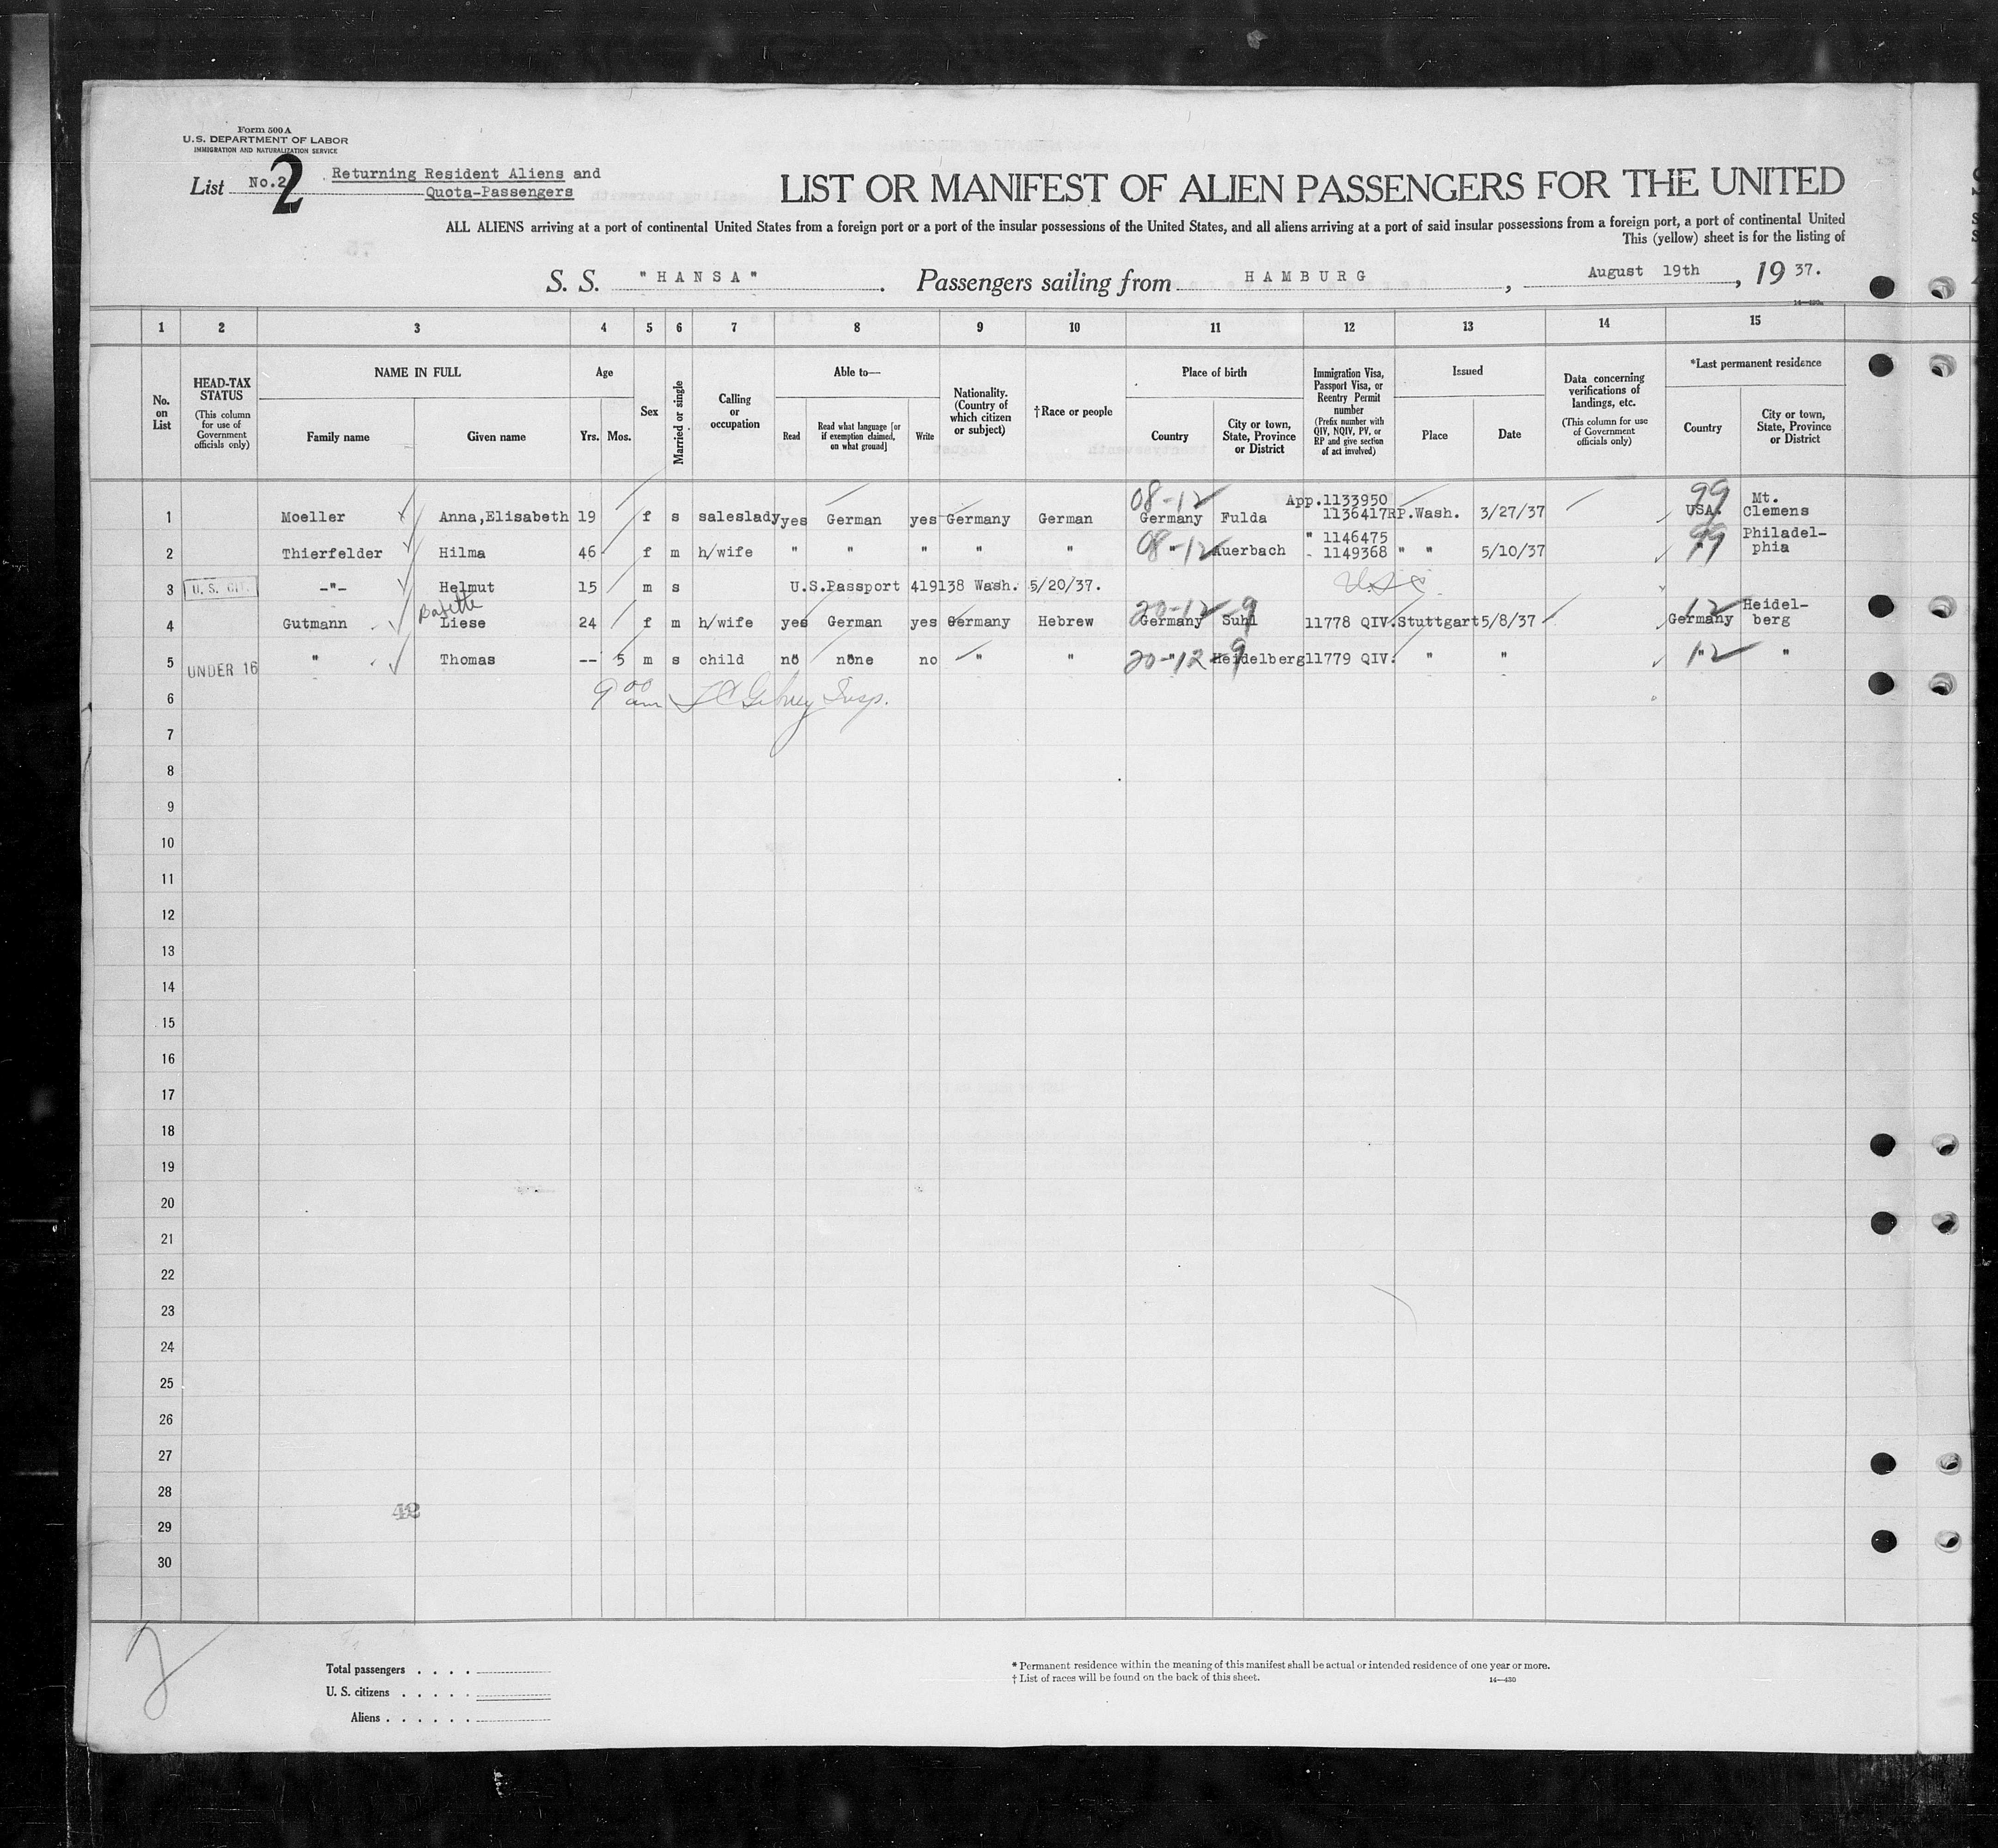 Form 500 A
U.S. DEPARTMENT OF LABOR
IMMIGRATION AND NATURALIZATION SERVICE
List No.2 2 Returning Resident Aliens and
Quota-Passengers
LIST OR MANIFEST OF ALIEN PASSENGERS FOR THE UNITED
ALL ALIENS arriving at a port of continental United States from a foreign port or a port of the insular possessions of the United States, and all aliens arriving at a port of said insular possessions from a foreign port, a port of continental United
This (yellow) sheet is for the listing of
S. S. "HANSA". Passengers sailing from HAMBURG, August 19th, 19 37.
1 2 3 4 5 6 7 8 9 10 11 12 13 14 15
No. on List
HEAD-TAX STATUS
(This column for use of Government officials only)
NAME IN FULL
Family name Given name
Age
Yrs. Mos.
Sex
Married or single
Calling or occupation
Able to—
Read
Read what language [or if exemption claimed, on what ground]
Write
Nationality. (Country of which citizen or subject)
†Race or people
Place of birth
Country
City or town, State, Province or District
Immigration Visa, Passport Visa, or Reentry Permit number
(Prefix number with QIV, NQIV, PV, or RP and give section of act involved)
Issued
Place Date
Data concerning verifications of landings, etc.
(This column for use of Government officials only)
*Last permanent residence
Country
City or town, State, Province or District
08-12 App.1133950 99 Mt.
1 Moeller Anna,Elisabeth 19 f s saleslady yes German yes Germany German Germany Fulda 1136417RP.Wash. 3/27/37 USA. Clemens
" 1146475 Philadel-
2 Thierfelder Hilma 46 f m h/wife " " " " " 08-12 " Auerbach - 1149368 " " 5/10/37 99 " phia
3 U. S. CIT. -"- Helmut 15 m s U.S.Passport 419138 Wash. 5/20/37. USC
Babette 20-12-9 12 Heidel-
4 Gutmann Liese 24 f m h/wife yes German yes Germany Hebrew Germany Suhl 11778 QIV.Stuttgart 5/8/37 Germany berg
5 UNDER 16 " Thomas -- 5 m s child no none no " " 20-12-9 " Heidelberg 11779 QIV. " " 12 " "
6 9 00 am Insp.
7
8
9
10
11
12
13
14
15
16
17
18
19
20
21
22
23
24
25
26
27
28
42
29
30
2
Total passengers . . . .
U. S. citizens . . . . .
Aliens . . . . . .
* Permanent residence within the meaning of this manifest shall be actual or intended residence of one year or more.
† List of races will be found on the back of this sheet.
14—430